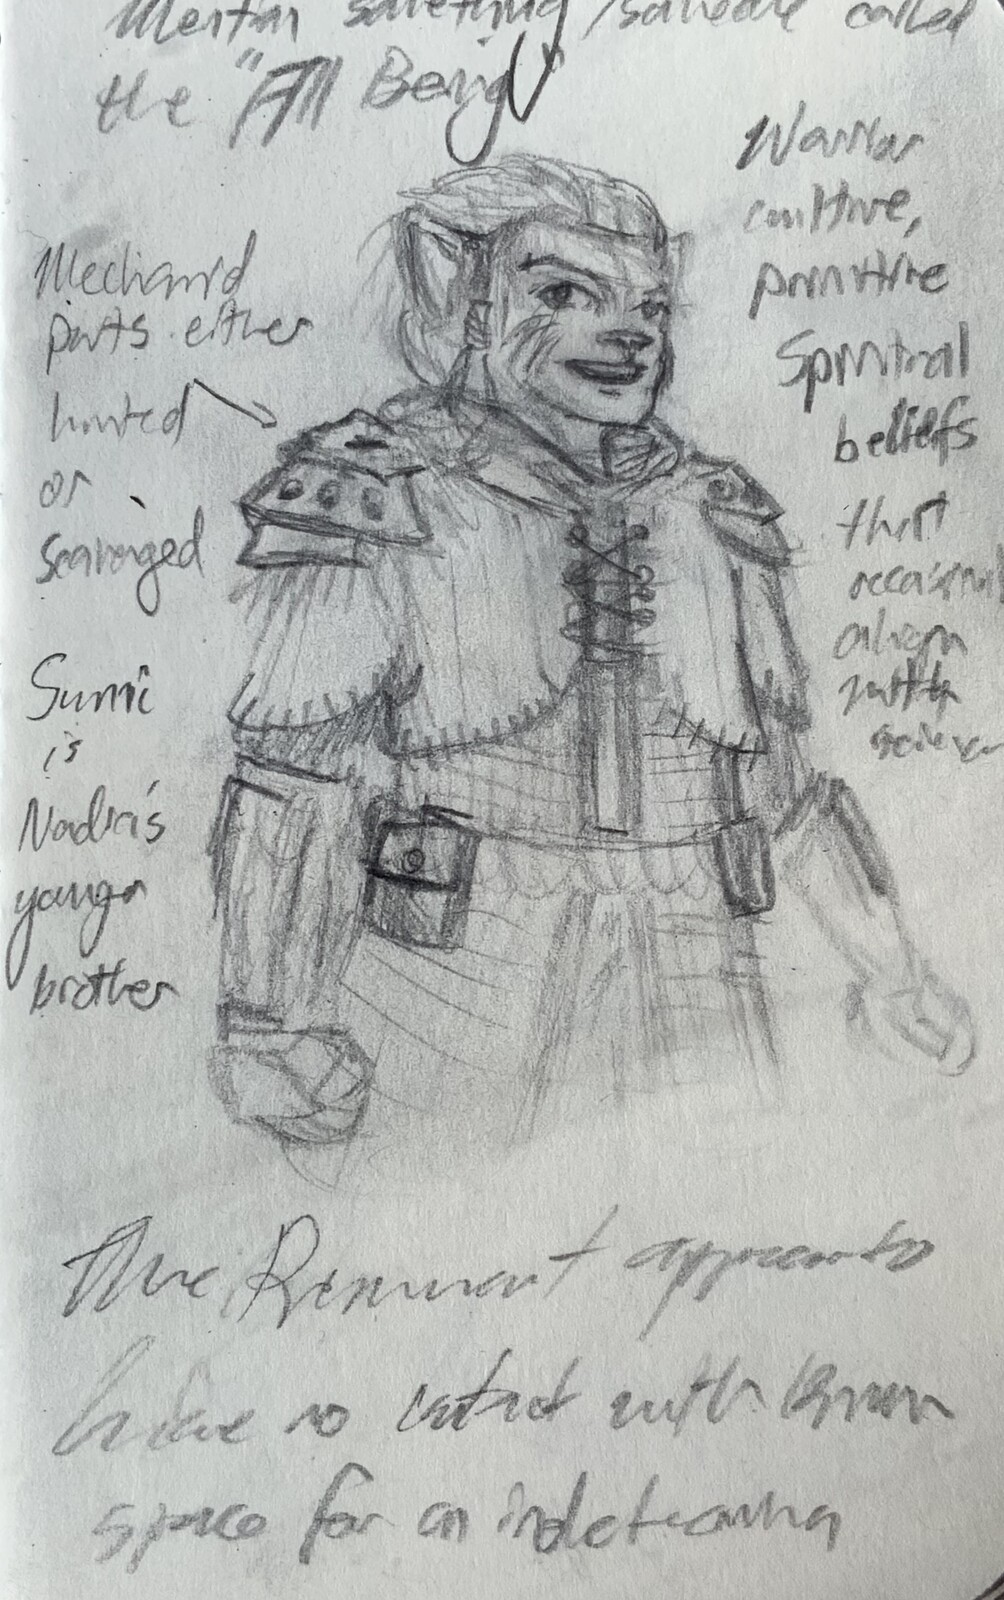 Mention something/someone called
the "All Being"
Warrior
culture,
primitive
Spiritual
beliefs
that
occasional
align
with
science
Mechanid
parts either
hunted
or
scavenged
Sumi
is
Nadia's
younger
brother
The Remnant appears to
have no contact with known
space for an